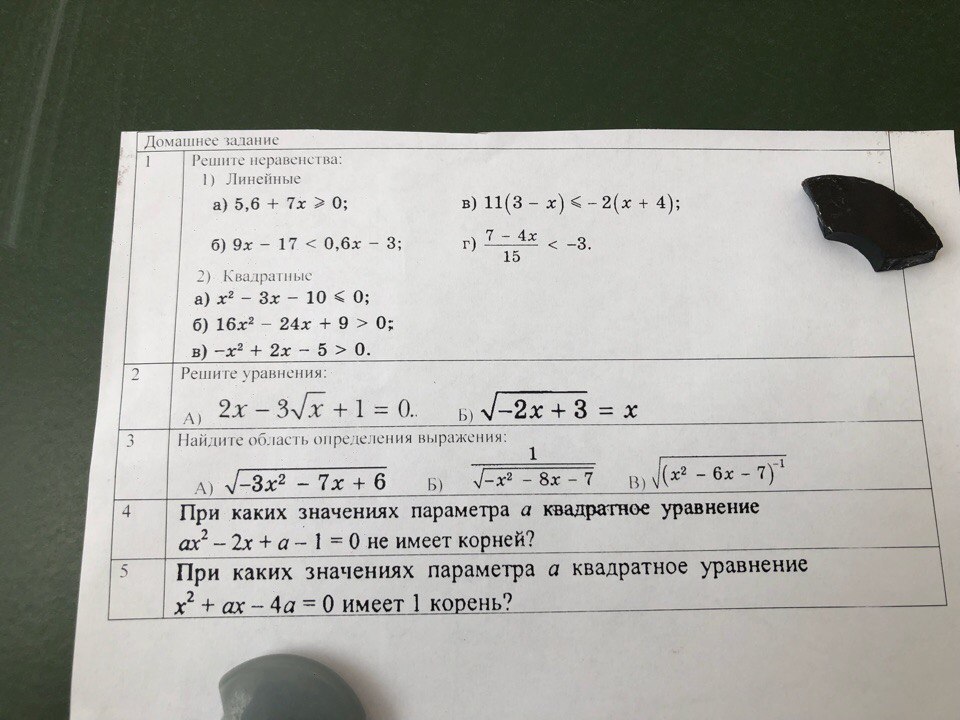 Домашнее задание
1 Решите неравенства:
1) Линейные
а) 5,6 + 7x ⩾ 0; в) 11(3 − x) ⩽ − 2(x + 4);
б) 9x − 17 < 0,6x − 3; г) (7 − 4x)/15 < −3.
2) Квадратные
а) x² − 3x − 10 ⩽ 0;
б) 16x² − 24x + 9 > 0;
в) −x² + 2x − 5 > 0.
2 Решите уравнения:
А) 2x − 3√x + 1 = 0.. Б) √(−2x + 3) = x
3 Найдите область определения выражения:
А) √(−3x² − 7x + 6) Б) 1/√(−x² − 8x − 7) В) √((x² − 6x − 7)⁻¹)
4 При каких значениях параметра a квадратное уравнение
ax² − 2x + a − 1 = 0 не имеет корней?
5 При каких значениях параметра a квадратное уравнение
x² + ax − 4a = 0 имеет 1 корень?